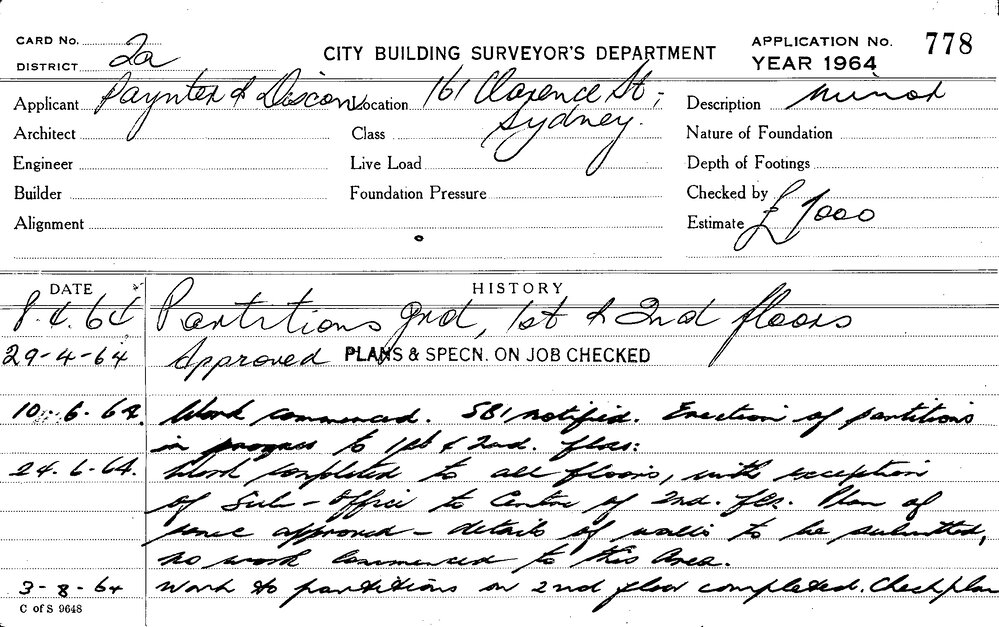 CARD No. 2a
CITY BUILDING SURVEYOR'S DEPARTMENT
APPLICATION No. 778
DISTRICT
YEAR 1964
Applicant Paynter & Dixon Location 161 Clarence St; Description Minor
Sydney.
Architect Class Nature of Foundation
Engineer Live Load Depth of Footings
Builder Foundation Pressure Checked by
Alignment Estimate £ 7000
DATE HISTORY
8.4.64 Partitions grd, 1st & 2nd floors
29-4-64 Approved PLANS & SPECN. ON JOB CHECKED
10.6.64. Work commenced. SBI notified. Erection of partitions
in progress to 1st & 2nd. flrs:
24.6.64. Work completed to all floors, with exception
of Sub-Office to Centre of 2nd. flr. Plan of
same approved - details of walls to be submitted,
no work commenced to this area.
3-8-64 Work to partitions on 2nd floor completed. Check plan
C of S 9648